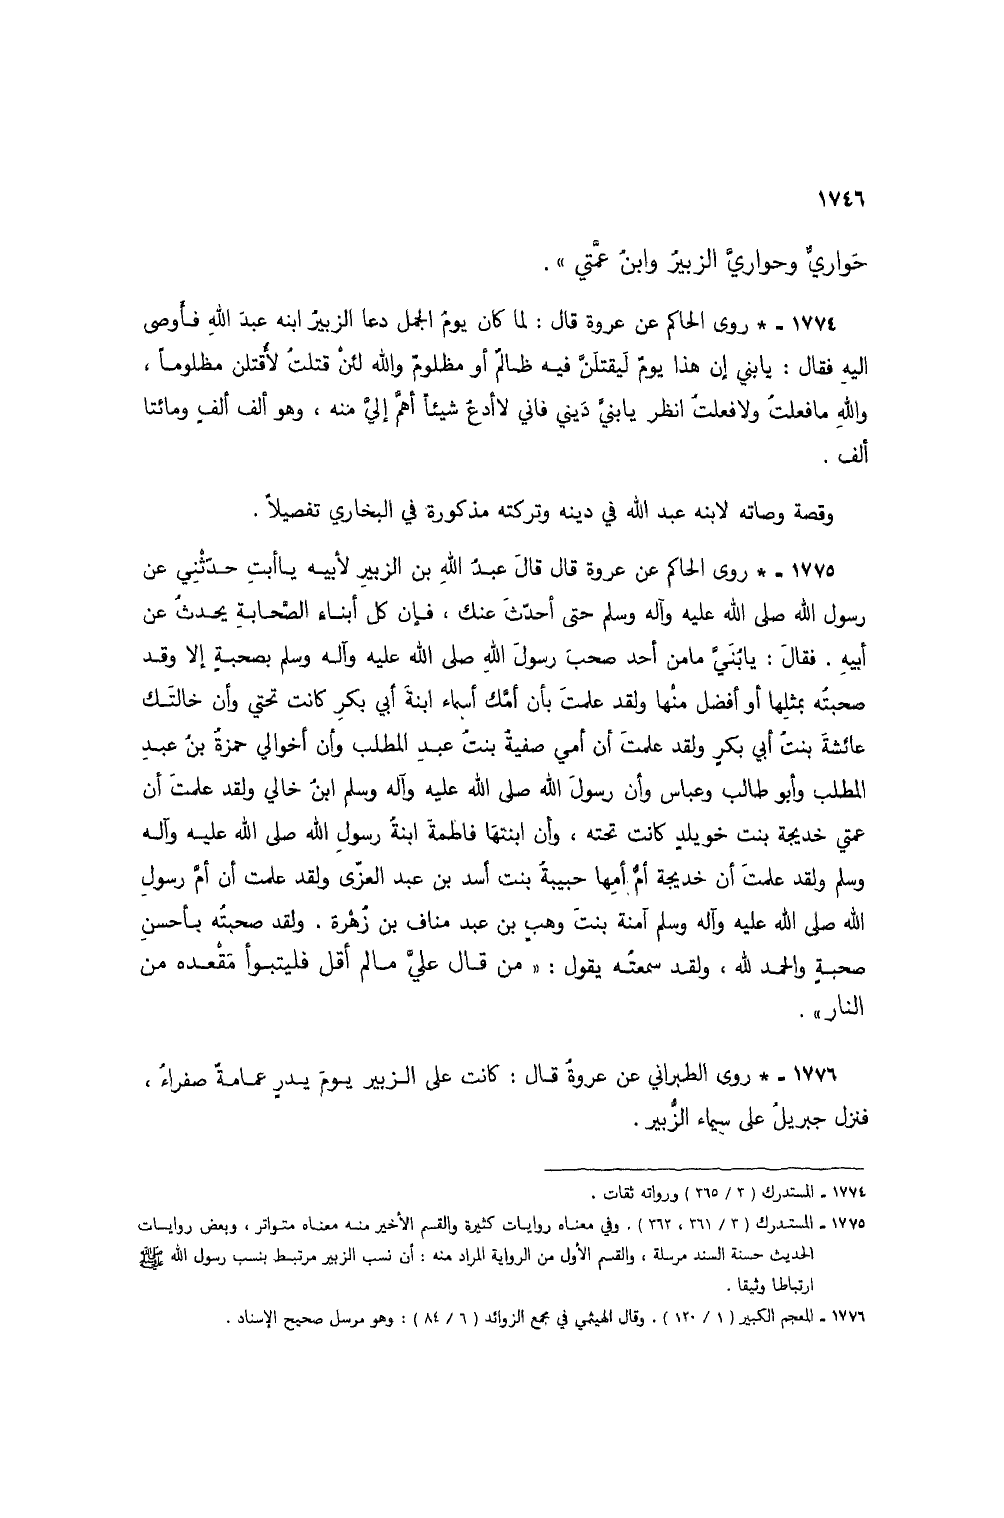 ١٧٤٦
حَواريٌّ وحواريَّ الزبيرُ وابنُ عمَّتي » .
١٧٧٤ - * روى الحاكم عن عروة قال : لما كان يومُ الجمل دعا الزبيرُ ابنه عبدَ اللهِ فأَوصى
اليهِ فقال : يابني إن هذا يومٌ لَيقتلَنَّ فيه ظالمٌ أو مظلومٌ والله لئنْ قتلتُ لأُقتلن مظلوماً ،
واللهِ مافعلتُ ولافعلتُ انظر يابنيَّ دَيني فاني لاأدعُ شيئاً أهمَّ إليَّ منه ، وهو ألف ألفٍ ومائتا
ألف .
وقصة وصاته لابنه عبد الله في دينه وتركته مذكورة في البخاري تفصيلاً .
١٧٧٥ - * روى الحاكم عن عروة قال قالَ عبدُ اللهِ بن الزبيرِ لأبيه ياأبتِ حدّثْنِي عن
رسول الله صلى الله عليه وآله وسلم حتى أحدّثَ عنك ، فإن كل أبناء الصْحابةِ يحدثُ عن
أبيهِ . فقالَ : يابُنَيَّ مامن أحد صحبَ رسولَ اللهِ صلى الله عليه وآله وسلم بصحبةٍ إلا وقد
صحبتُه بمثلِها أو أفضل منْها ولقد علمتَ بأن أمَّك أسماء ابنةَ أبي بكرٍ كانت تحتي وأن خالتَك
عائشةَ بنتُ أبي بكرٍ ولقد علمتَ أن أمي صفيةُ بنتُ عبدِ المطلب وأن أخوالي حمزةُ بنُ عبدِ
المطلب وأبو طالب وعباس وأن رسولَ الله صلى الله عليه وآله وسلم ابنُ خالي ولقد علمتَ أن
عمتي خديجة بنت خويلدٍ كانت تحته ، وأن ابنتهَا فاطمةَ ابنةُ رسولِ الله صلى الله عليه وآله
وسلم ولقد علمتَ أن خديجة أمُّ أمِها حبيبةُ بنت أسد بن عبد العزّى ولقد علمت أن أمَّ رسولِ
الله صلى الله عليه وآله وسلم آمنة بنتَ وهبٍ بن عبد مناف بن زُهْرة . ولقد صحبتُه بأحسنِ
صحبةٍ والحمد لله ، ولقد سمعتُه يقول : « من قال عليَّ مالم أقل فليتبوأ مَقْعده من
النار» .
١٧٧٦ - * روى الطبراني عن عروةُ قال : كانت على الزبير يومَ بدرٍ عمامةٌ صفراءُ ،
فنزل جبريلُ على سِيماء الزُّبير .
١٧٧٤ - المستدرك ( ٣ / ٣٦٥ ) ورواته ثقات .
١٧٧٥ - المستدرك ( ٣ / ٣٦١ ، ٣٦٢ ) . وفي معناه روايات كثيرة والقسم الأخير منه معناه متواتر ، وبعض روايات
الحديث حسنة السند مرسلة ، والقسم الأول من الرواية المراد منه : أن نسب الزبير مرتبط بنسب رسول الله ﷺ
ارتباطا وثيقا .
١٧٧٦ - المعجم الكبير ( ١ / ١٢٠ ) . وقال الهيثمي في مجمع الزوائد ( ٦ / ٨٤ ) : وهو مرسل صحيح الإسناد .